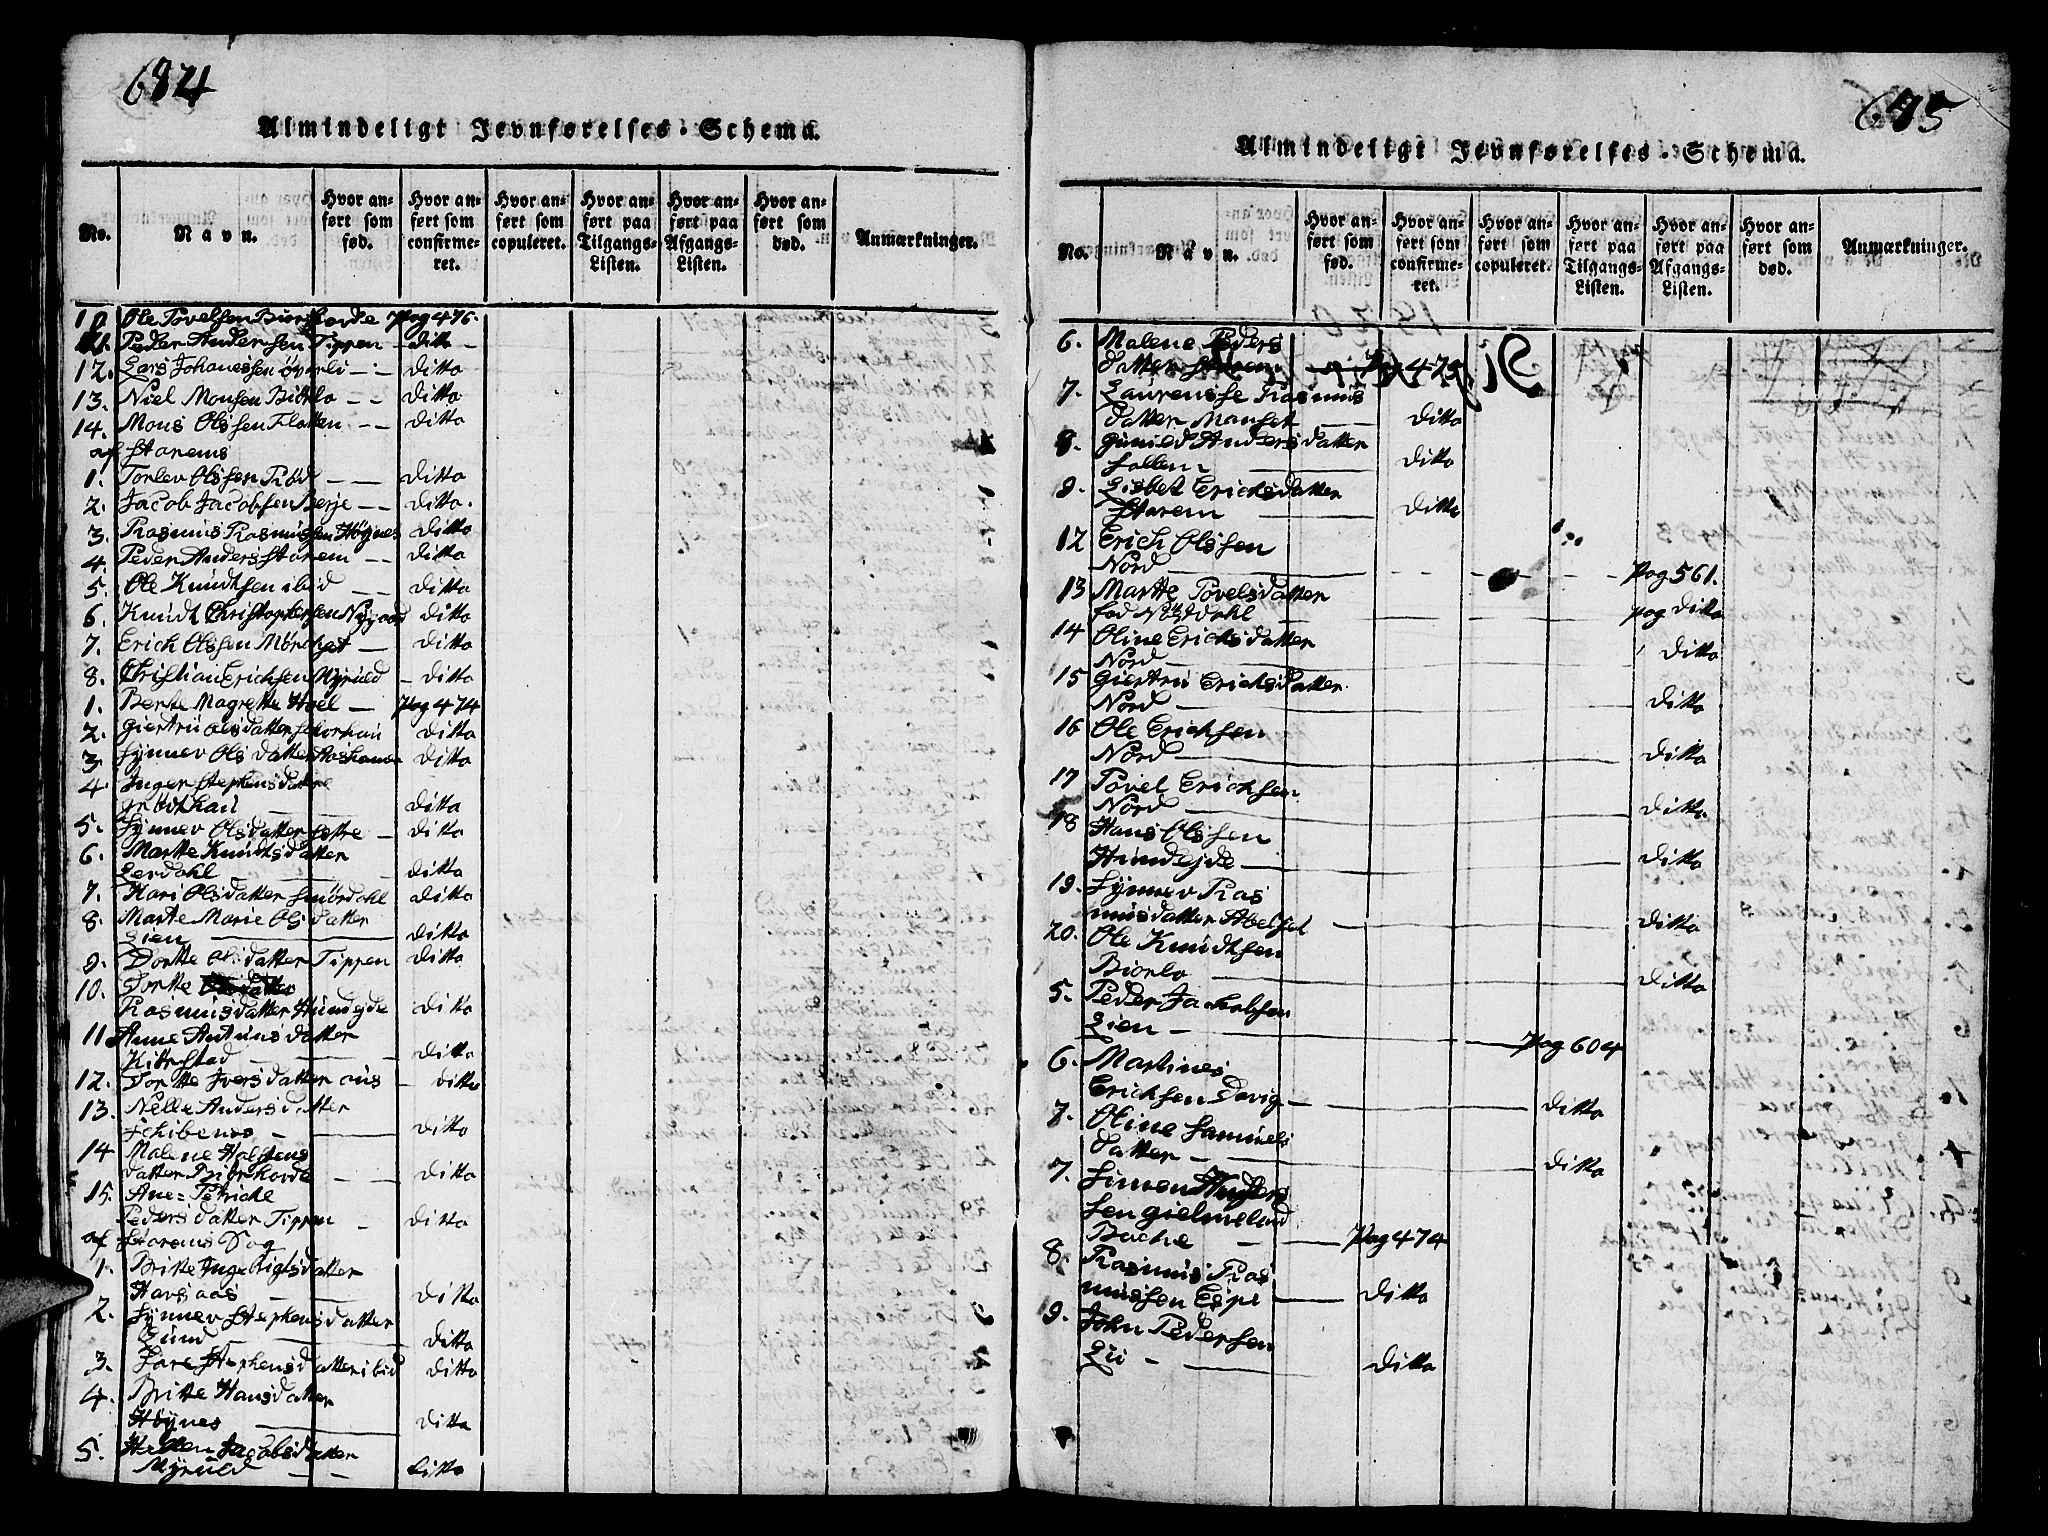 684
Almindeligt Jevnførelses-Schema.
No.
Navn.
Hvor anført som fød.
Hvor anført som confirmeret.
Hvor anført som copuleret.
Hvor anført paa Tilgangs-Listen.
Hvor anført paa Afgangs-Listen.
Hvor anført som død.
Anmærkninger.
10 Ole Povelsen Pag 476.
11. Peder Andersen Tippen - ditto -
12. Lars Johanessen Øverli - - ditto
13. Niel Monsen Biørlo - - ditto
14. Mons Olssen Flatten - - ditto
af Starems
1. Torlev Olssen Rød - - ditto
2. Jacob Jacobsen Berje - - ditto.
3. Rasmus Rasmussen Høynes ditto
4. Peder Anders Starem - - ditto
5. Ole Knudtsen ibid - - ditto
6. Knudt Christophersen Nygaard ditto
7. Erich Olssen - ditto
8. Christian Erichsen Myrüld - ditto
1. Berte Magrette Hoel - Pag 474
2. Giertru Olsdatter ditto
3. Synnev Olsdatter ditto
4. Inger Stephensdatter
ditto
5. Synnev Olsdatter - ditto
6. Martte Knudtsdatter
Lerdahl - - ditto
7. Kari Olsdatter Smørdahl ditto
8. Marte Marie Olsdatter
Lien - ditto
9. Dortte Olsdatter Tippen ditto
10. Dortte
Rasmusdatter Hundejde ditto
11. Anne Antonsdatter
- - ditto
12. Dortte Iversdatter Aus - ditto
13. Nelle Andersdatter
- - ditto
14 Malene Halstens
datter - - ditto
15. Ane Petricke
Pedersdatter Tippen - ditto
af Starems Sog
1. Britte Ingebrigtsdatter
Havsaas - - ditto
2. Synnev Stephensdatter
Lund - - ditto
3. Stephensdatter ibid ditto
4. Britte Hansdatter
Høynes - ditto
5. Jacobsdatter
Myrüld - - ditto
685
Almindeligt Jevnførelses-Schema.
No.
Navn.
Hvor anført som fød.
Hvor anført som confirmeret.
Hvor anført som copuleret.
Hvor anført paa Tilgangs-Listen.
Hvor anført paa Afgangs-Listen.
Hvor anført som død.
Anmærkninger.
6. Malene Peders
datter Starem - - 475
7. Laurensse Rasmus
datter - - ditto
8. Andersdatter
- ditto
9. Lisbet Erichsdatter
Starem - ditto
12 Erich Olssen
Nord - - - Pag 561.
13 Martte Povelsdatter
fød - pag ditto
14 Oline Erichsdatter
Nord - ditto
15 Giertru Erichsdatter
Nord - ditto
16 Ole Erichsen
Nord - ditto
17 Povel Erichsen
Nord - ditto
18 Hans Olssen
Hundejde - ditto
19. Synnev Ras
musdatter - ditto
20. Ole Knudtsen
Biørlo - ditto
5. Peder Jackobsen
Lien - - Pag 604
6. Martines
Erichsen Davig - ditto
7. Oline Samuels
datter - ditto
7. Simen Anders
sen Gielmeland
Bache - Pag 474
8. Rasmus Ras
mussen Espe - ditto
9. John Pedersen
Lii - ditto